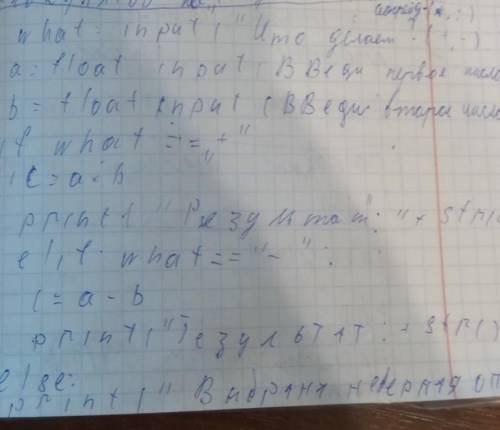 what = input ( " Что делаем? ( +, - )
a = float input ( ВВеди первое число
b = float input ( ВВеди второе число
if what == "+"
c = a + b
print ( " Результат: " + str(c
elif what == "-" :
c = a - b
print ( " Результат: + str(
else:
print ( " Выбрана неверная оп